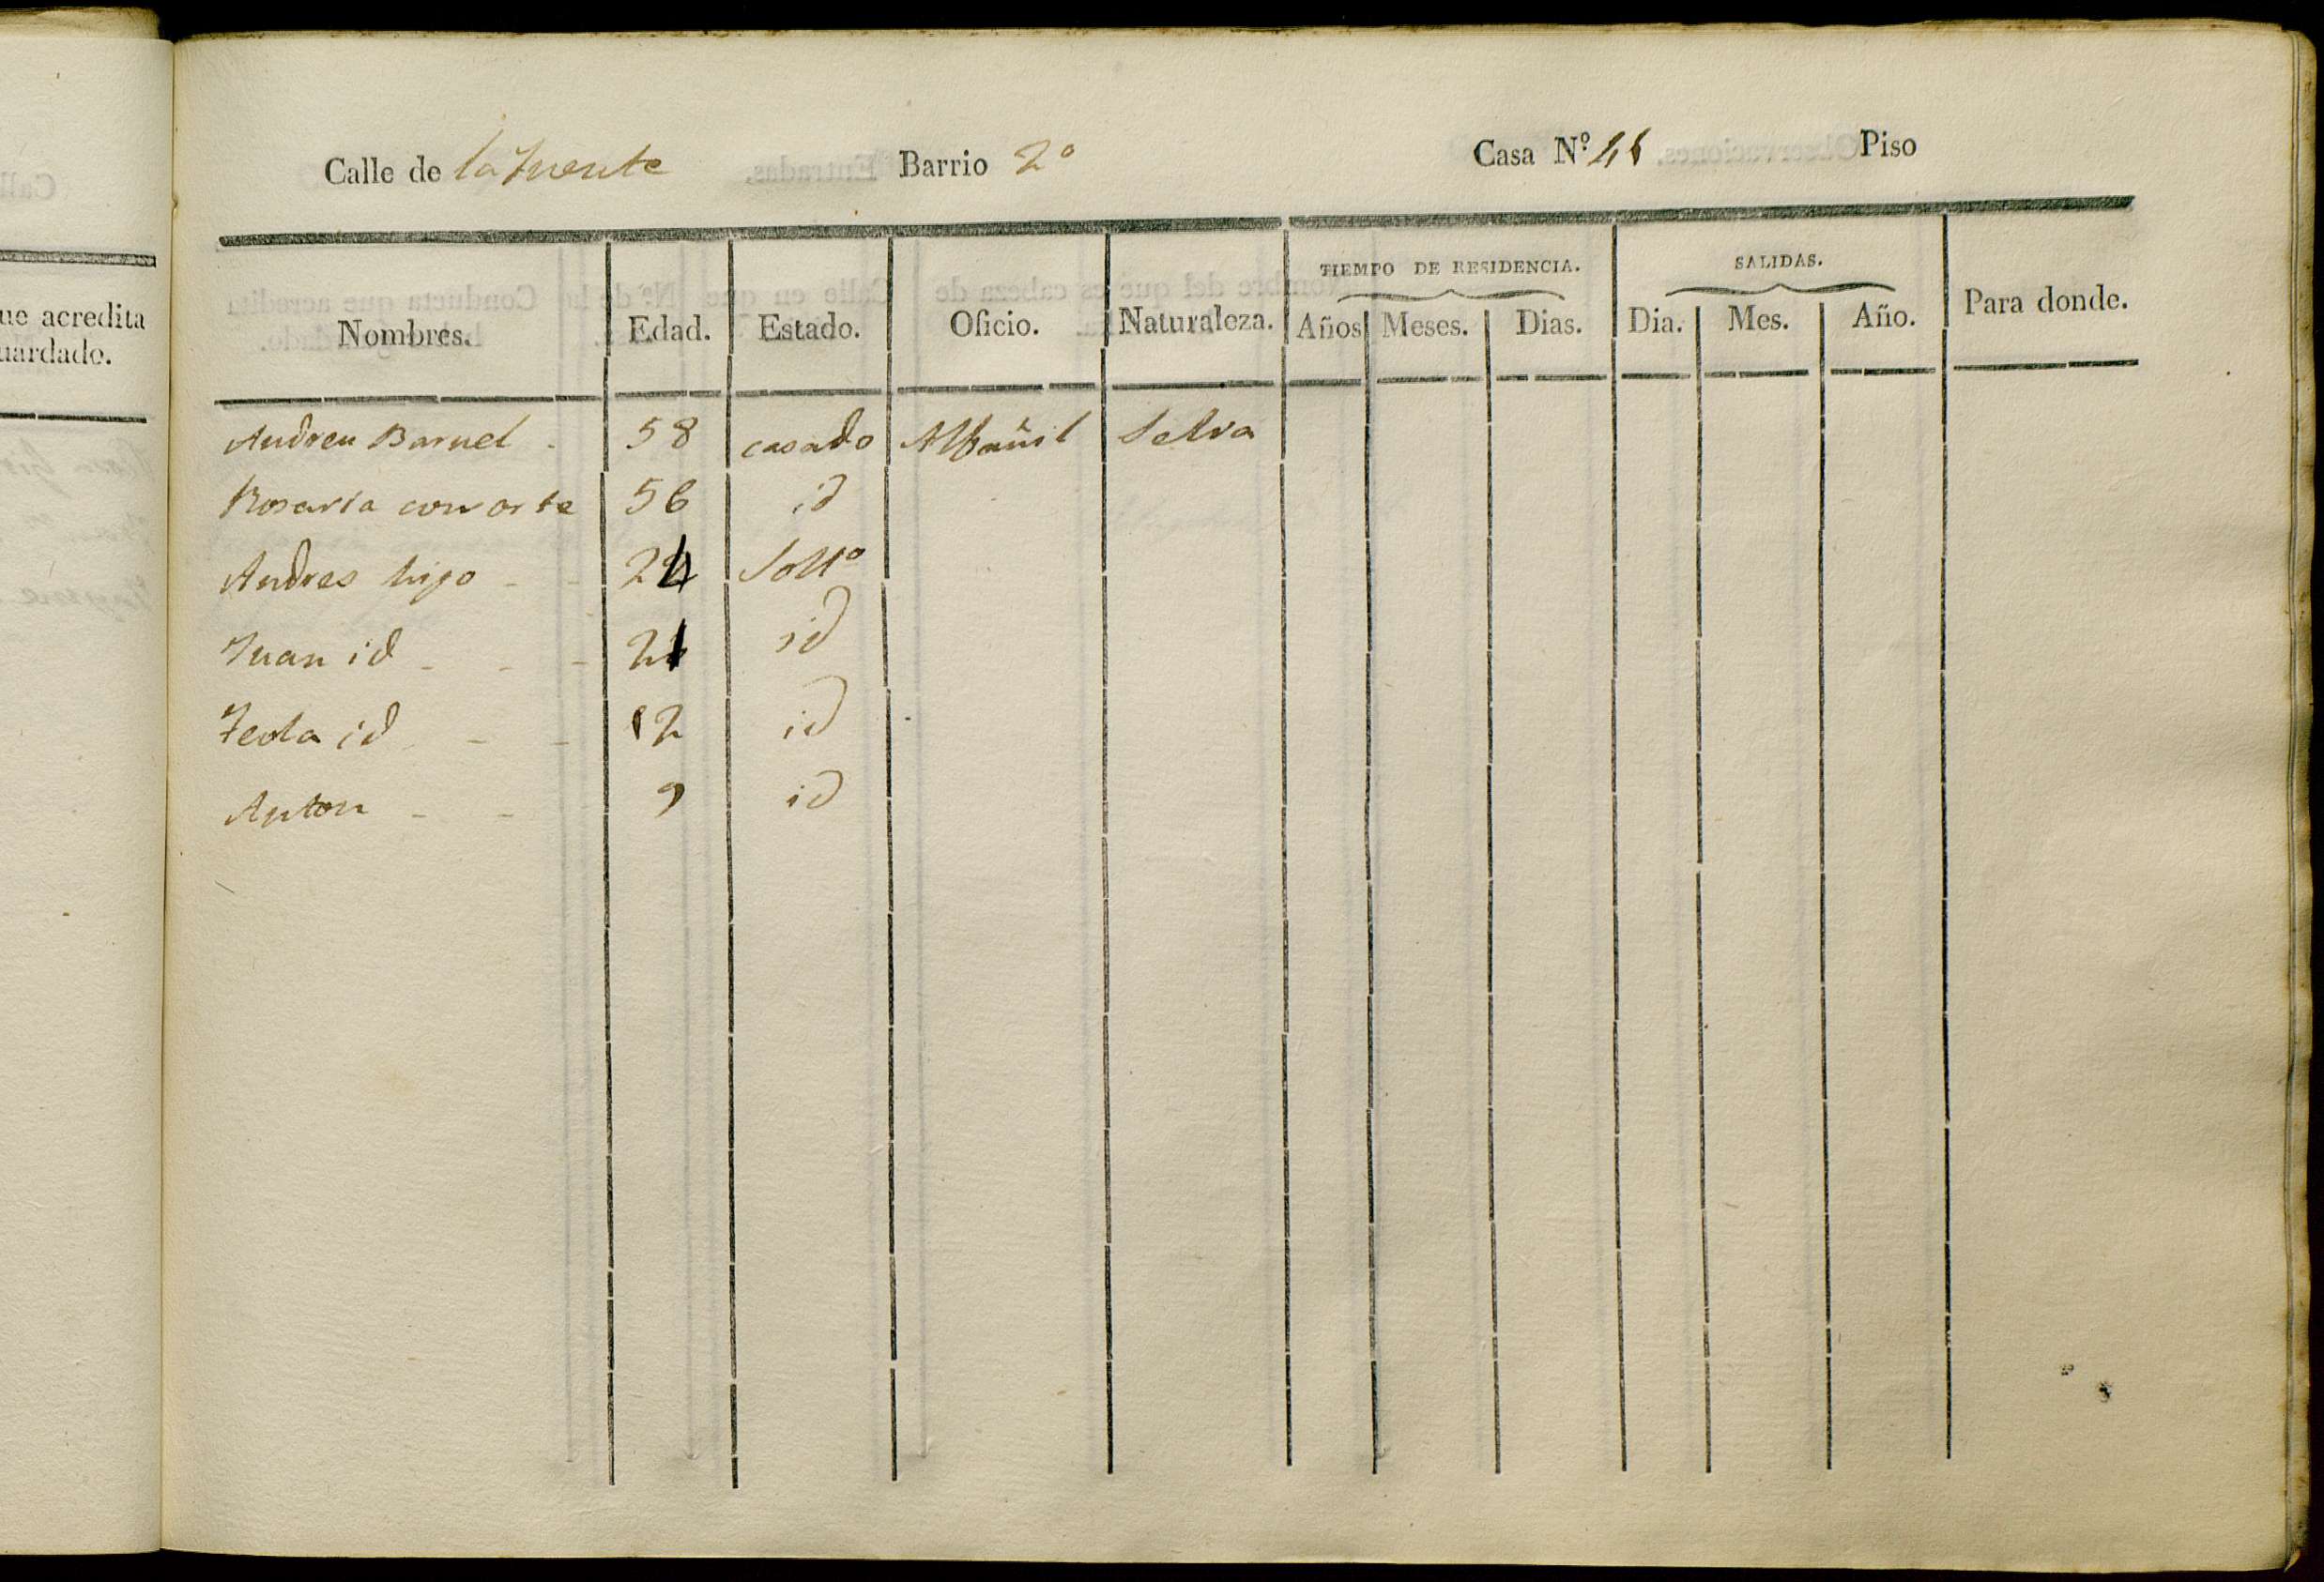 Calle de la Fuente Barrio 2º Casa Nº. 46 Piso
TIEMPO DE RESIDENCIA. SALIDAS.
Nombres. Edad. Estado. Oficio. Naturaleza. Años Meses. Dias. Dia. Mes. Año. Para donde.
Andreu Barnel 58 casado Albañil Selva
Rosaria consorte 56 id
Andres hijo 24 Soltº
Juan id 21 id
Tecla id 12 id
Anton 9 id
ue acredita
uardado.